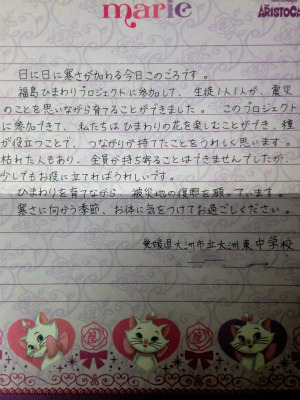 marie
ARISTOCA
日に日に寒さが加わる今日このごろです。
福島ひまわりプロジェクトに参加して、生徒1人1人が、震災
のことを思いながら育てることができました。このプロジェクト
に参加できて、私たちはひまわりの花を楽しむことができ、種
が役立つことで、つながりが持てたことをうれしく思います。
枯れた人もあり、全員が持ち寄ることはできませんでしたが、
少しでもお役に立てればうれしいです。
ひまわりを育てながら、被災地の復興を願っています。
寒さに向かう季節、お体に気をつけてお過ごしください。
愛媛県大洲市立大洲東中学校